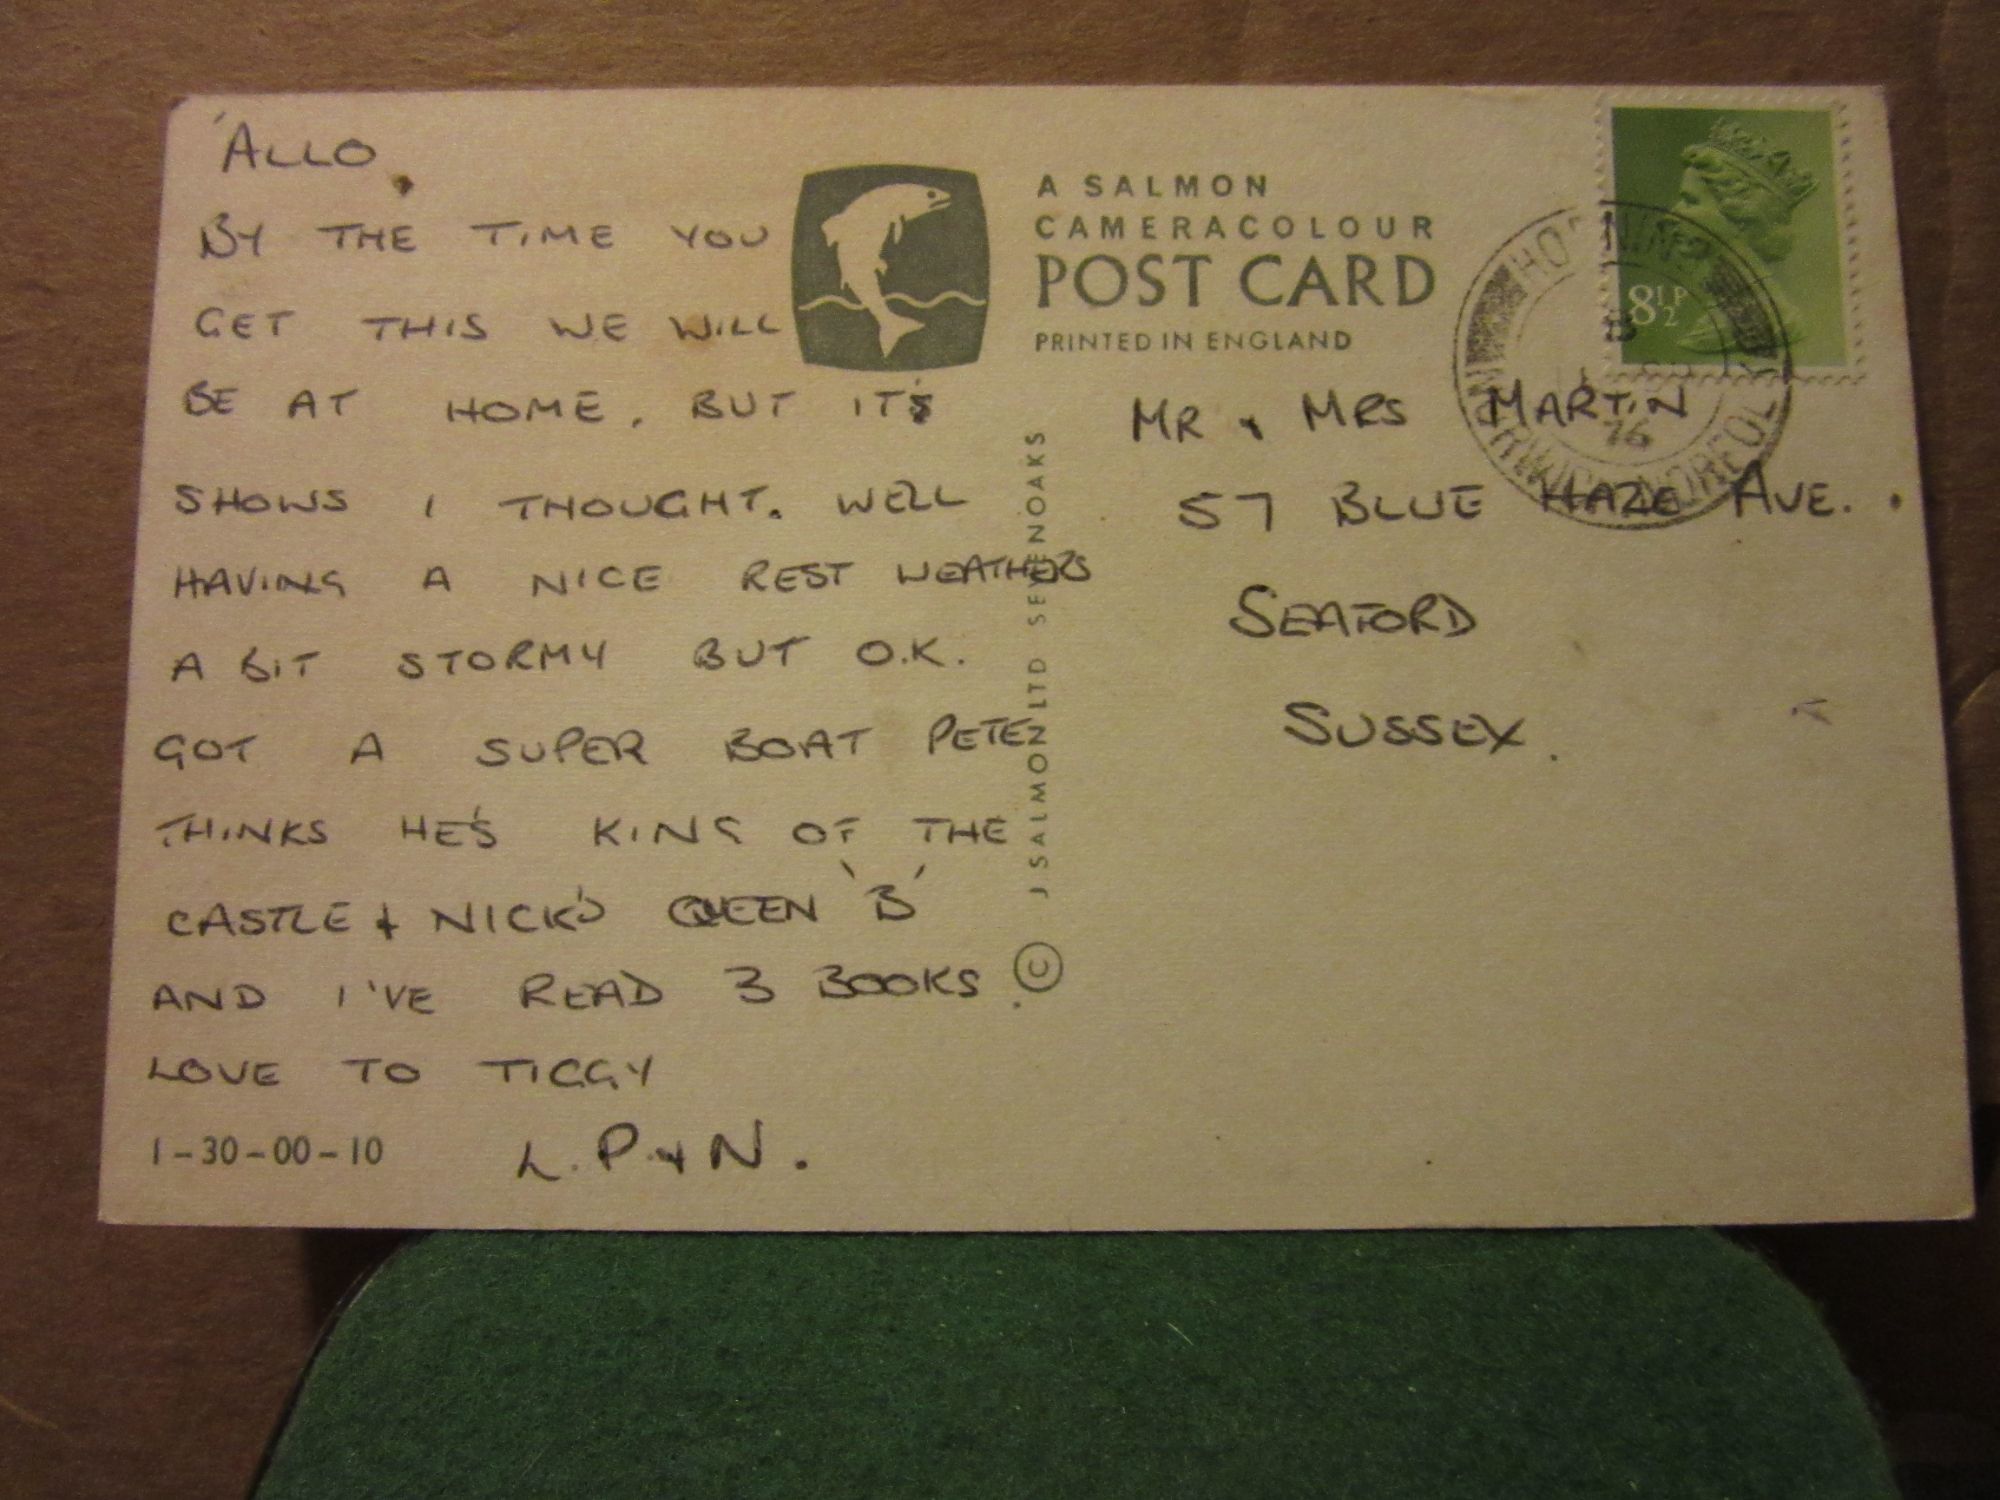 'ALLO,
BY THE TIME YOU
GET THIS WE WILL
BE AT HOME, BUT IT'S
SHOWS I THOUGHT. WELL
HAVING A NICE REST WEATHERS
A BIT STORMY BUT O.K.
GOT A SUPER BOAT PETE
THINKS HE'S KING OF THE
CASTLE & NICK'S QUEEN 'B'
AND I'VE READ 3 BOOKS.
LOVE TO TIGGY
L. P. & N.
1-30-00-10
A SALMON
CAMERACOLOUR
POST CARD
PRINTED IN ENGLAND
© J SALMON LTD SEVENOAKS
8½P
HORNING
NORWICH NORFOLK
76
MR & MRS MARTIN
57 BLUE HAZE AVE.
SEAFORD
SUSSEX.